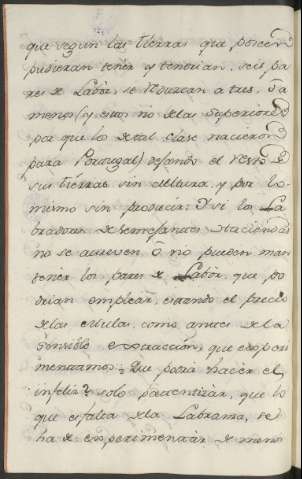 que segun las tierras que poseen
pudieran tener y tendrian, seis pa
res de Labòr, se reduzcan a tres, ò a
menos (y esto, no de las superiores
por que los de tal clase nacieron
para Portugal) dejando el resto de
sus tierras sin cultura, y por lo
mismo sin producir. Y si los La
bradores de semejantes Haciendas
no se atreven ò no pueden man
tener los pares de Labòr, que po
drian emplear, estando el precio
de las como antes de la
sensible extraccion, que experi
mentamos; Que podrà hacer el
infeliz? solo garantizar, que lo
que es falta de la Labranza, se
ha de experimentar de menos